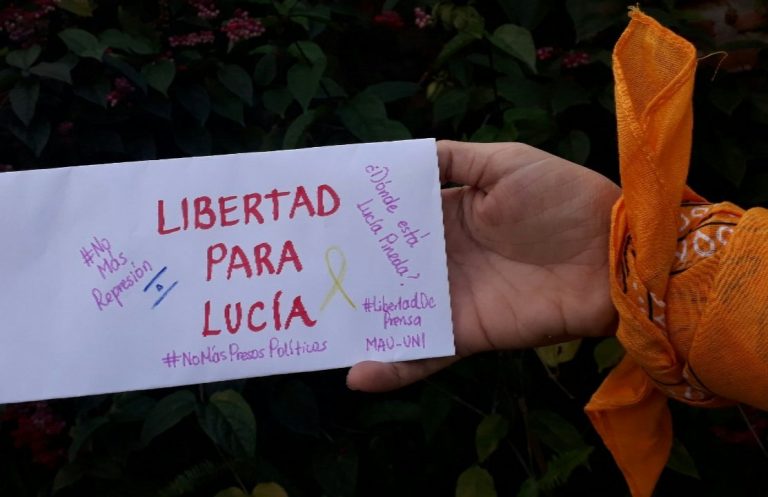 LIBERTAD
PARA
LUCÍA
#No
Más
Represión
¿Dónde está
Lucía Pineda?
#LibertadDe
Prensa
MAU-UNI
#NoMásPresosPolíticos